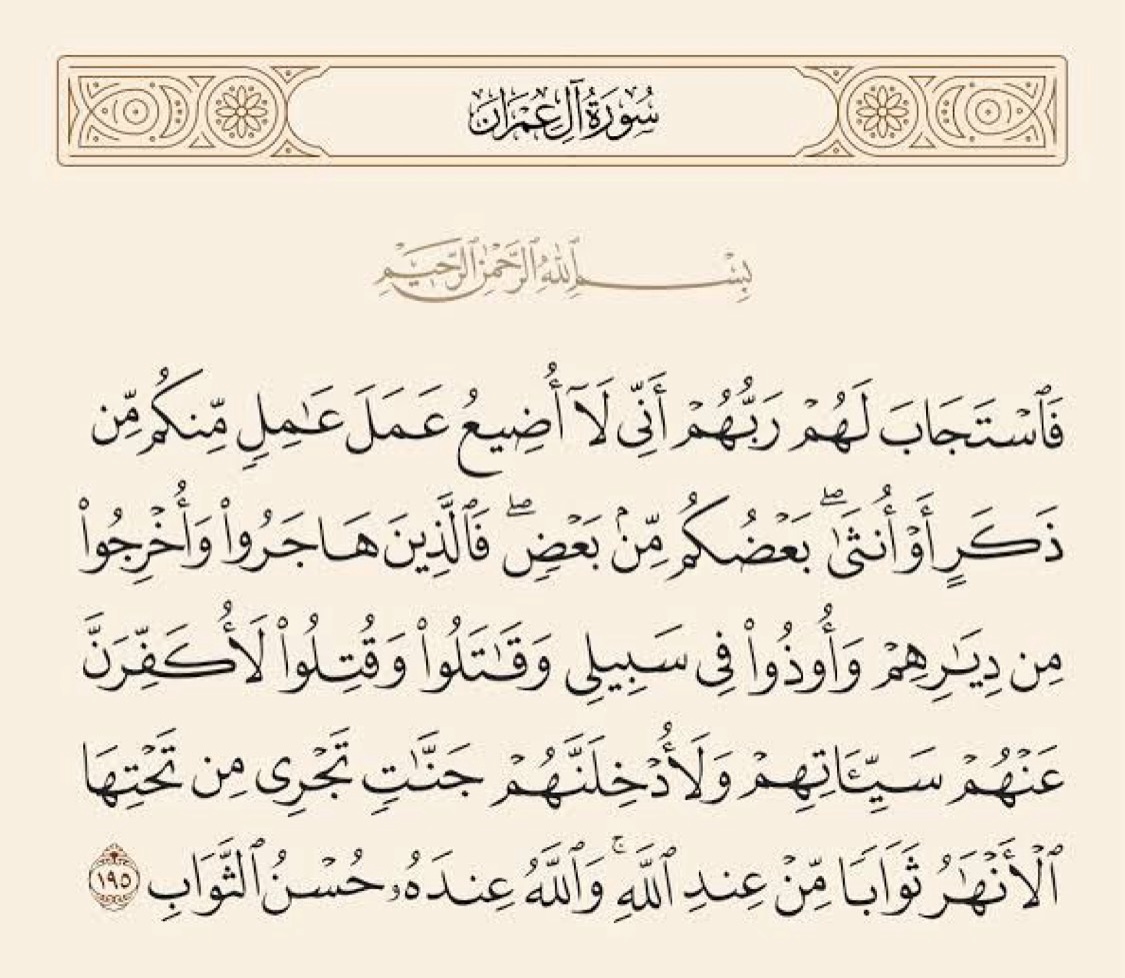 سُورَةُ آلِ عِمْرَانَ
بِسْمِ ٱللَّهِ ٱلرَّحْمَٰنِ ٱلرَّحِيمِ
فَٱسْتَجَابَ لَهُمْ رَبُّهُمْ أَنِّى لَآ أُضِيعُ عَمَلَ عَٰمِلٍ مِّنكُم مِّن
ذَكَرٍ أَوْ أُنثَىٰ ۖ بَعْضُكُم مِّنۢ بَعْضٍ ۖ فَٱلَّذِينَ هَاجَرُوا۟ وَأُخْرِجُوا۟
مِن دِيَٰرِهِمْ وَأُوذُوا۟ فِى سَبِيلِى وَقَٰتَلُوا۟ وَقُتِلُوا۟ لَأُكَفِّرَنَّ
عَنْهُمْ سَيِّـَٔاتِهِمْ وَلَأُدْخِلَنَّهُمْ جَنَّٰتٍ تَجْرِى مِن تَحْتِهَا
ٱلْأَنْهَٰرُ ثَوَابًا مِّنْ عِندِ ٱللَّهِ ۚ وَٱللَّهُ عِندَهُۥ حُسْنُ ٱلثَّوَابِ ١٩٥